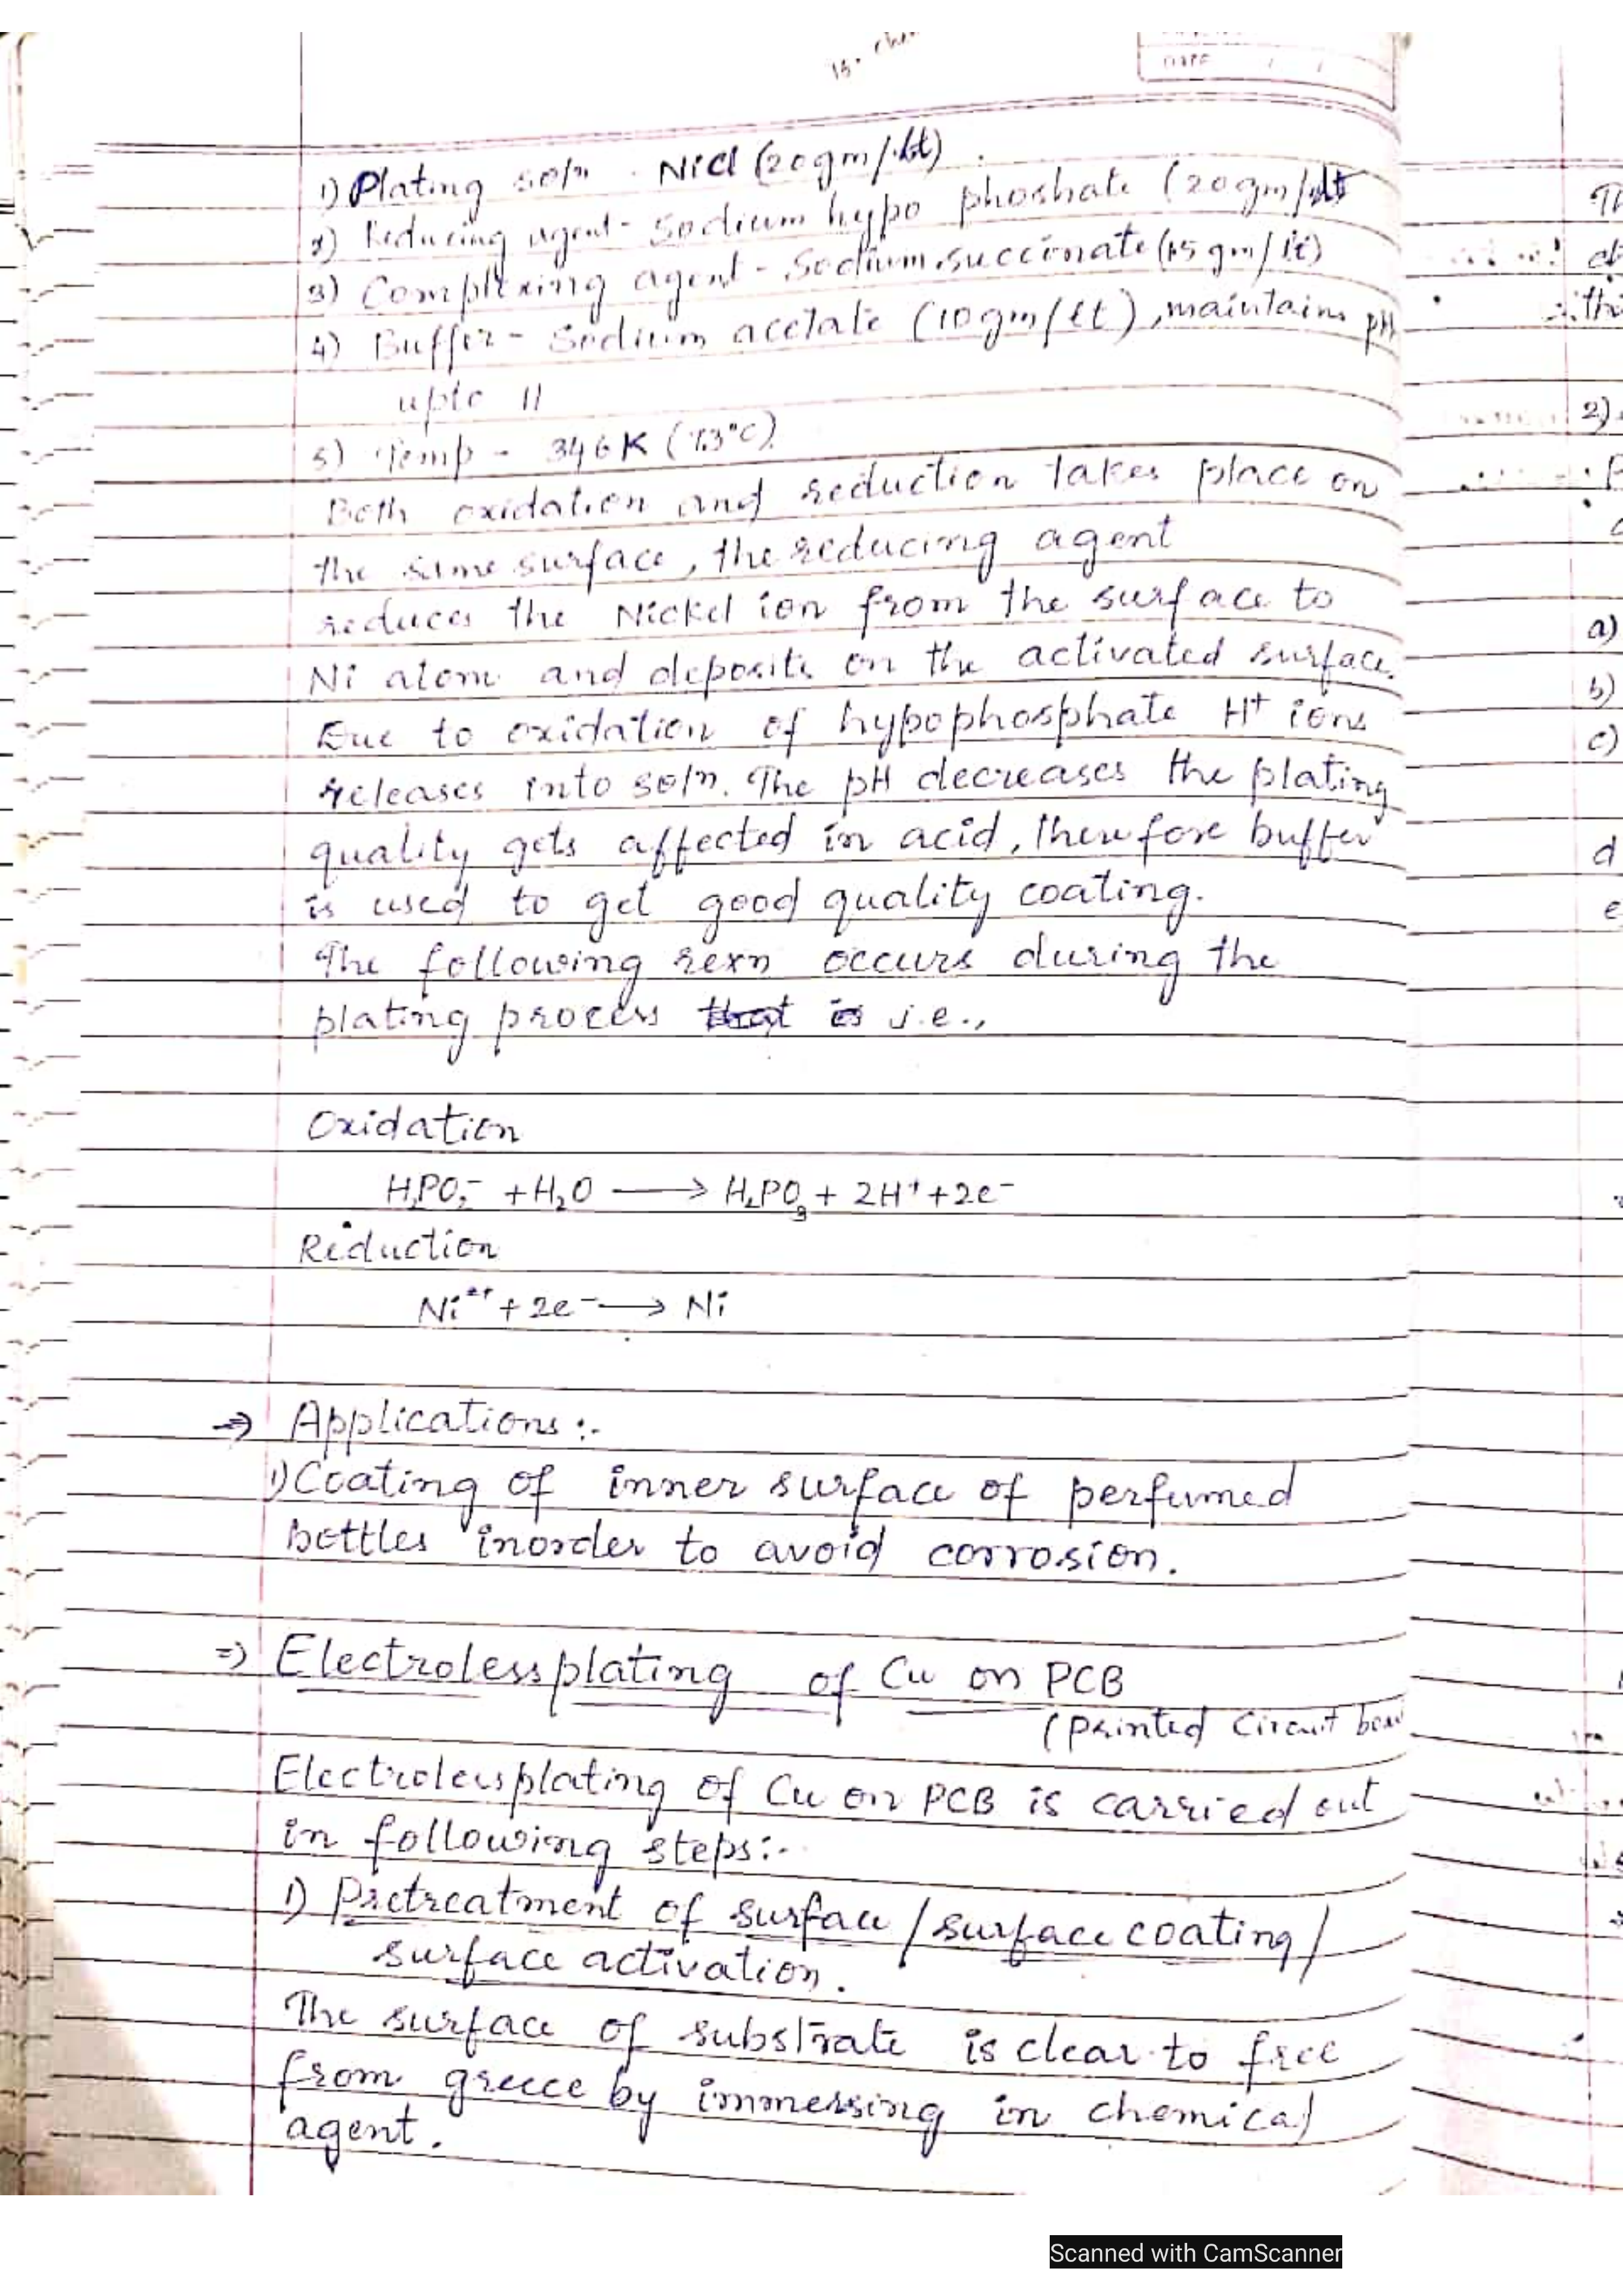 1) Plating sol/n. NiCl (20gm/lt).
2) Reducing agent - Sodium hypo phoshate (20gm/lt
3) Complexing agent - Sodium succinate (15 gm/lt)
4) Buffer - Sodium acetate (10gm/lt), maintains pH
upto 11
5) Temp - 346K (73°C).
Both oxidation and reduction takes place on
the same surface, the reducing agent
reduces the Nickel ion from the surface to
Ni atom and deposits on the activated surface.
Due to oxidation of hypophosphate H⁺ ions
releases into sol/n. The pH decreases the plating
quality gets affected in acid, therefore buffer
is used to get good quality coating.
The following rexn occurs during the
plating process i.e.,
Oxidation
H₂PO₂⁻ + H₂O ⟶ H₂PO₃ + 2H⁺ + 2e⁻
Reduction
Ni²⁺ + 2e⁻ ⟶ Ni
⇒ Applications :-
1) Coating of inner surface of perfumed
bottles inorder to avoid corrosion.
⇒ Electrolessplating of Cu on PCB
(Printed Circuit boar
Electrolessplating of Cu on PCB is carried out
in following steps:-
1) Pretreatment of surface / surface coating /
surface activation.
The surface of substrate is clear to free
from greece by immersing in chemical
agent.
DATE / /
Th
2)
a)
b)
c)
d
e
Scanned with CamScanner